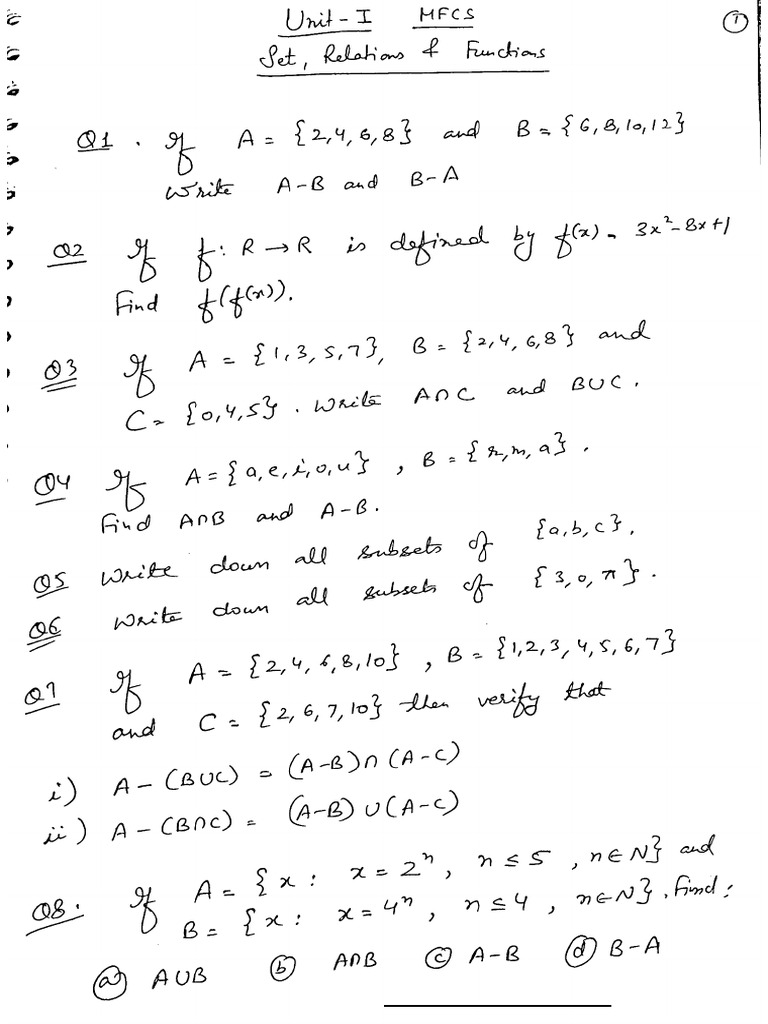 Unit-I MFCS
①
Set, Relations & Functions
Q1. If A = {2,4,6,8} and B = {6,8,10,12}
Write A-B and B-A
Q2 If f: R→R is defined by f(x) = 3x²-8x+1
Find f(f(x)).
Q3 If A = {1,3,5,7}, B = {2,4,6,8} and
C = {0,4,5}. Write A∩C and B∪C.
Q4 If A = {a,e,i,o,u}, B = {r,m,a}.
Find A∩B and A-B.
Q5 Write down all subsets of {a,b,c}.
Q6 Write down all subsets of {3,0,π}.
Q7 If A = {2,4,6,8,10}, B = {1,2,3,4,5,6,7}
and C = {2,6,7,10} then verify that
i) A-(B∪C) = (A-B)∩(A-C)
ii) A-(B∩C) = (A-B)∪(A-C)
Q8. If A = {x: x=2ⁿ, n≤5, n∈N} and
B = {x: x=4ⁿ, n≤4, n∈N}. Find:
(a) A∪B (b) A∩B (c) A-B (d) B-A